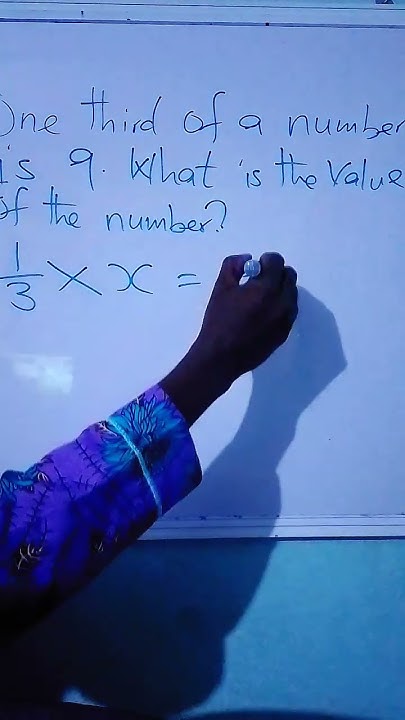 One third of a number
is 9. What is the Value
of the number?
1/3 × x =